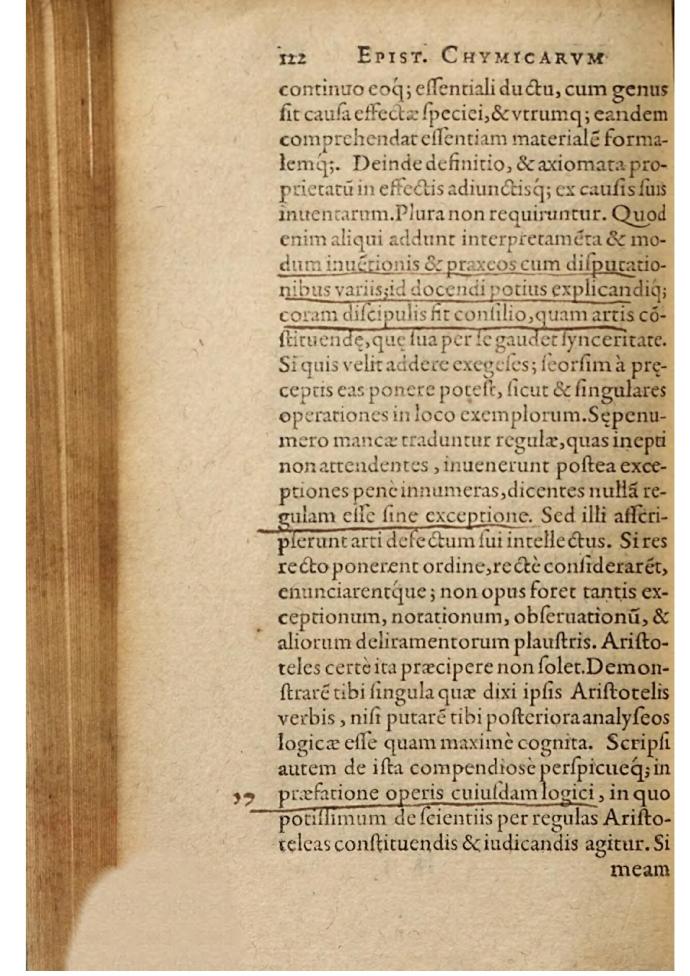 122 EPIST. CHYMICARVM
continuo eoq́; eſſentiali ductu, cum genus
ſit cauſa effectæ ſpeciei,& vtrumq; eandem
comprehendat eſſentiam materialē forma-
lemq́;. Deinde definitio, & axiomata pro-
prietatū in effectis adiunctisq́; ex cauſis ſuis
inuentarum.Plura non requiruntur. Quod
enim aliqui addunt interpretamēta & mo-
dum inuētionis & praxeos cum diſputatio-
nibus variis;id docendi potius explicandiq́;
coram diſcipulis ſit conſilio,quam artis cō-
ſtituendę,quę ſua per ſe gaudet ſynceritate.
Si quis velit addere exegeſes; ſeorſim à prę-
ceptis eas ponere poteſt, ſicut & ſingulares
operationes in loco exemplorum.Sępenu-
mero mancæ traduntur regulæ,quas inepti
non attendentes , inuenerunt poſtea exce-
ptiones penè innumeras,dicentes nullā re-
gulam eſſe ſine exceptione. Sed illi aſſcri-
pſerunt arti defectum ſui intellectus. Si res
recto ponerent ordine,rectè conſiderarēt,
enunciarentq́ue ; non opus foret tantis ex-
ceptionum, notationum, obſeruationū, &
aliorum deliramentorum plauſtris. Ariſto-
teles certè ita præcipere non ſolet.Demon-
ſtrarē tibi ſingula quæ dixi ipſis Ariſtotelis
verbis , niſi putarē tibi poſteriora analyſeos
logicæ eſſe quam maximè cognita. Scripſi
autem de iſta compendiosè perſpicueq́; in
præfatione operis cuiuſdam logici , in quo
potiſſimum de ſcientiis per regulas Ariſto-
teleas conſtituendis & iudicandis agitur. Si
meam